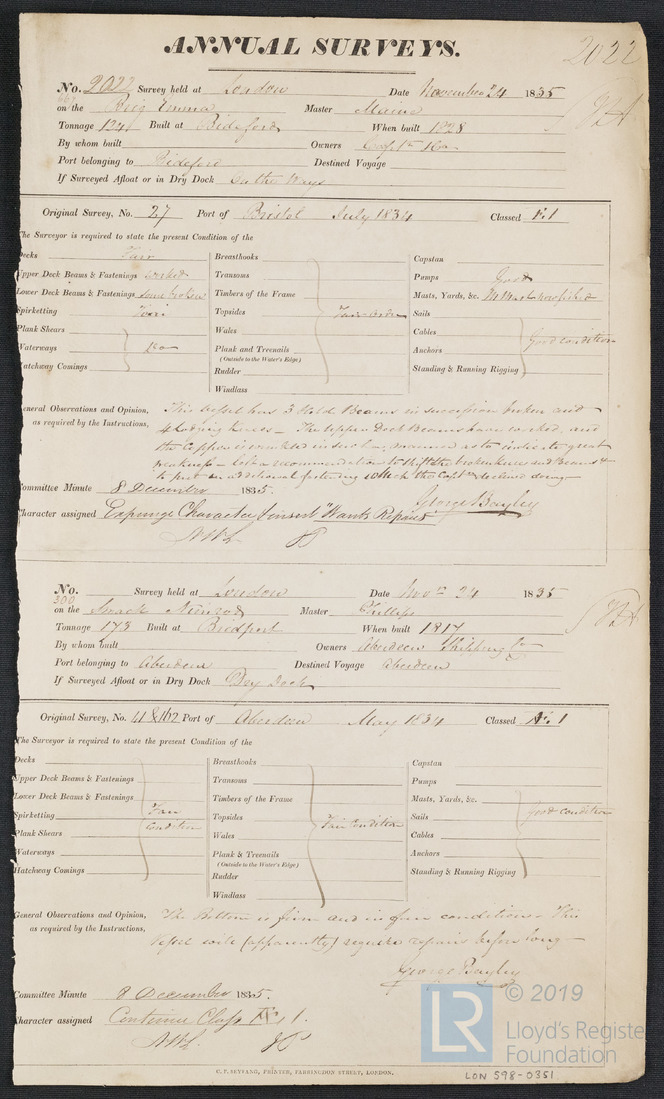 ANNUAL SURVEYS.
2022
No. 2022 Survey held at London Date November 24 1835
on the Brig Emma Master Maine
Tonnage 124 Built at Bideford When built 1828
By whom built Owners Capt. & Co
Port belonging to Bideford Destined Voyage
If Surveyed Afloat or in Dry Dock On the Ways
Original Survey, No. 27 Port of Bristol July 1834 Classed Æ.1
The Surveyor is required to state the present Condition of the
Decks Fair
Upper Deck Beams & Fastenings worked
Lower Deck Beams & Fastenings some broken
Spirketting Fair
Plank Shears
Waterways Do
Hatchway Comings
Breasthooks
Transoms
Timbers of the Frame
Topsides Fair order
Wales
Plank and Treenails
(Outside to the Water's Edge)
Rudder
Windlass
Capstan
Pumps Good
Masts, Yards, &c.
Sails
Cables
Anchors Good condition
Standing & Running Rigging
General Observations and Opinion,
as required by the Instructions,
This Vessel has 3 Hold Beams in succession broken and
4 Lodging knees - The upper Deck Beams have worked, and
the Copper is wrinkled in such a manner as to indicate great
weakness - a recommendation to shift the broken knees and Beams &
to put in additional fastening which the Capt. declined doing
George Bayley
Committee Minute 8 December 1835.
Character assigned Expunge Character & insert "Wants Repairs"
No. Survey held at London Date Novr 24 1835
300
on the Smack Nimrod Master Phillips
Tonnage 173 Built at Bridport When built 1817
By whom built Owners Aberdeen Shipping Co
Port belonging to Aberdeen Destined Voyage Aberdeen
If Surveyed Afloat or in Dry Dock Dry Dock
Original Survey, No. 41 & 162 Port of Aberdeen May 1834 Classed Æ.1
The Surveyor is required to state the present Condition of the
Decks
Upper Deck Beams & Fastenings
Lower Deck Beams & Fastenings
Spirketting Fair
Condition
Plank Shears
Waterways
Hatchway Comings
Breasthooks
Transoms
Timbers of the Frame
Topsides Fair Condition
Wales
Plank & Treenails
(Outside to the Water's Edge)
Rudder
Windlass
Capstan
Pumps
Masts, Yards, &c.
Sails Good condition
Cables
Anchors
Standing & Running Rigging
General Observations and Opinion,
as required by the Instructions,
The Bottom is firm and in fair condition - This
Vessel will (apparently) require repairs before long -
George Bayley
Committee Minute 8 December 1835.
Character assigned Continue Class Æ 1.
C. F. SEYFANG, PRINTER, FARRINGDON STREET, LONDON.
LON 598-0351
LR © 2019
Lloyd's Registe
Foundation